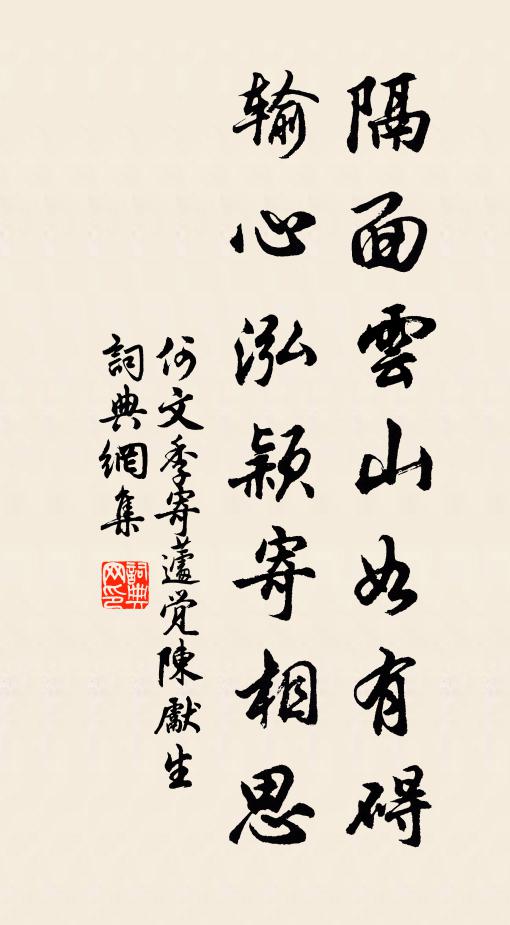 隔面雲山如有碍
輸心泓颖寄相思
何文季寄蘧觉陳獻生
詞典網集
詞典网印